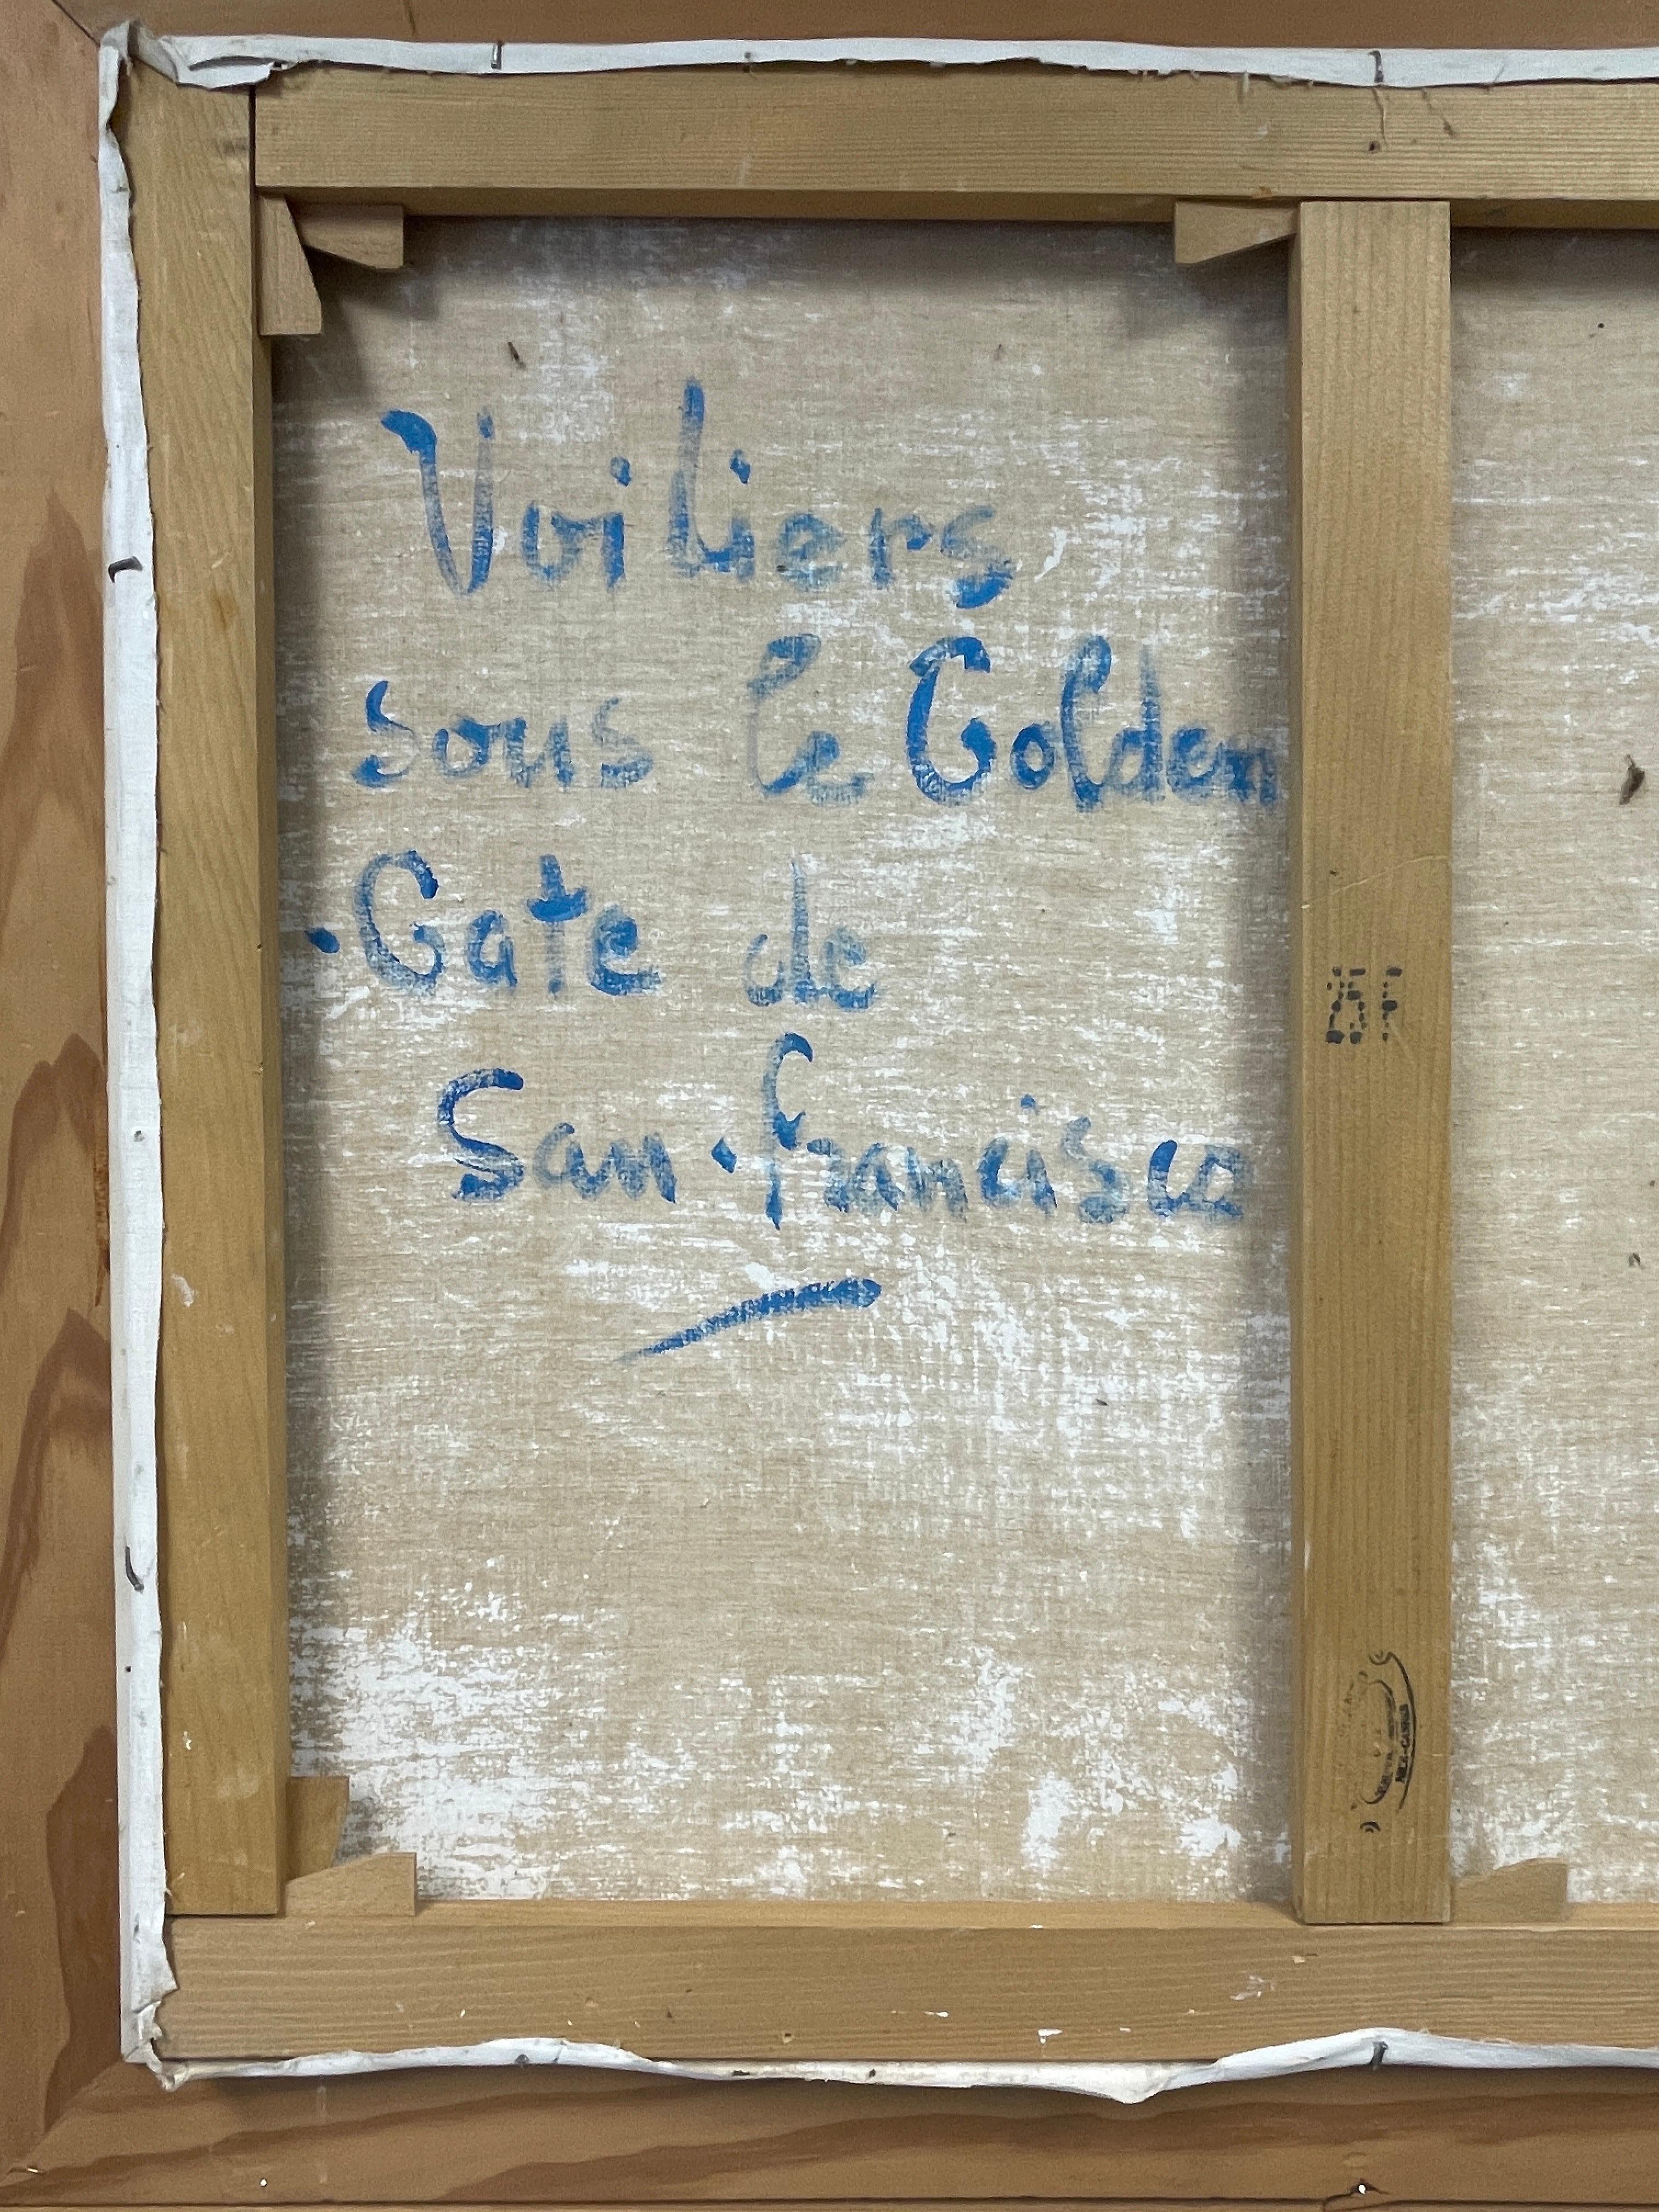 Voiliers
sous le Golden
Gate de
San-Francisco
NICE-CANNES